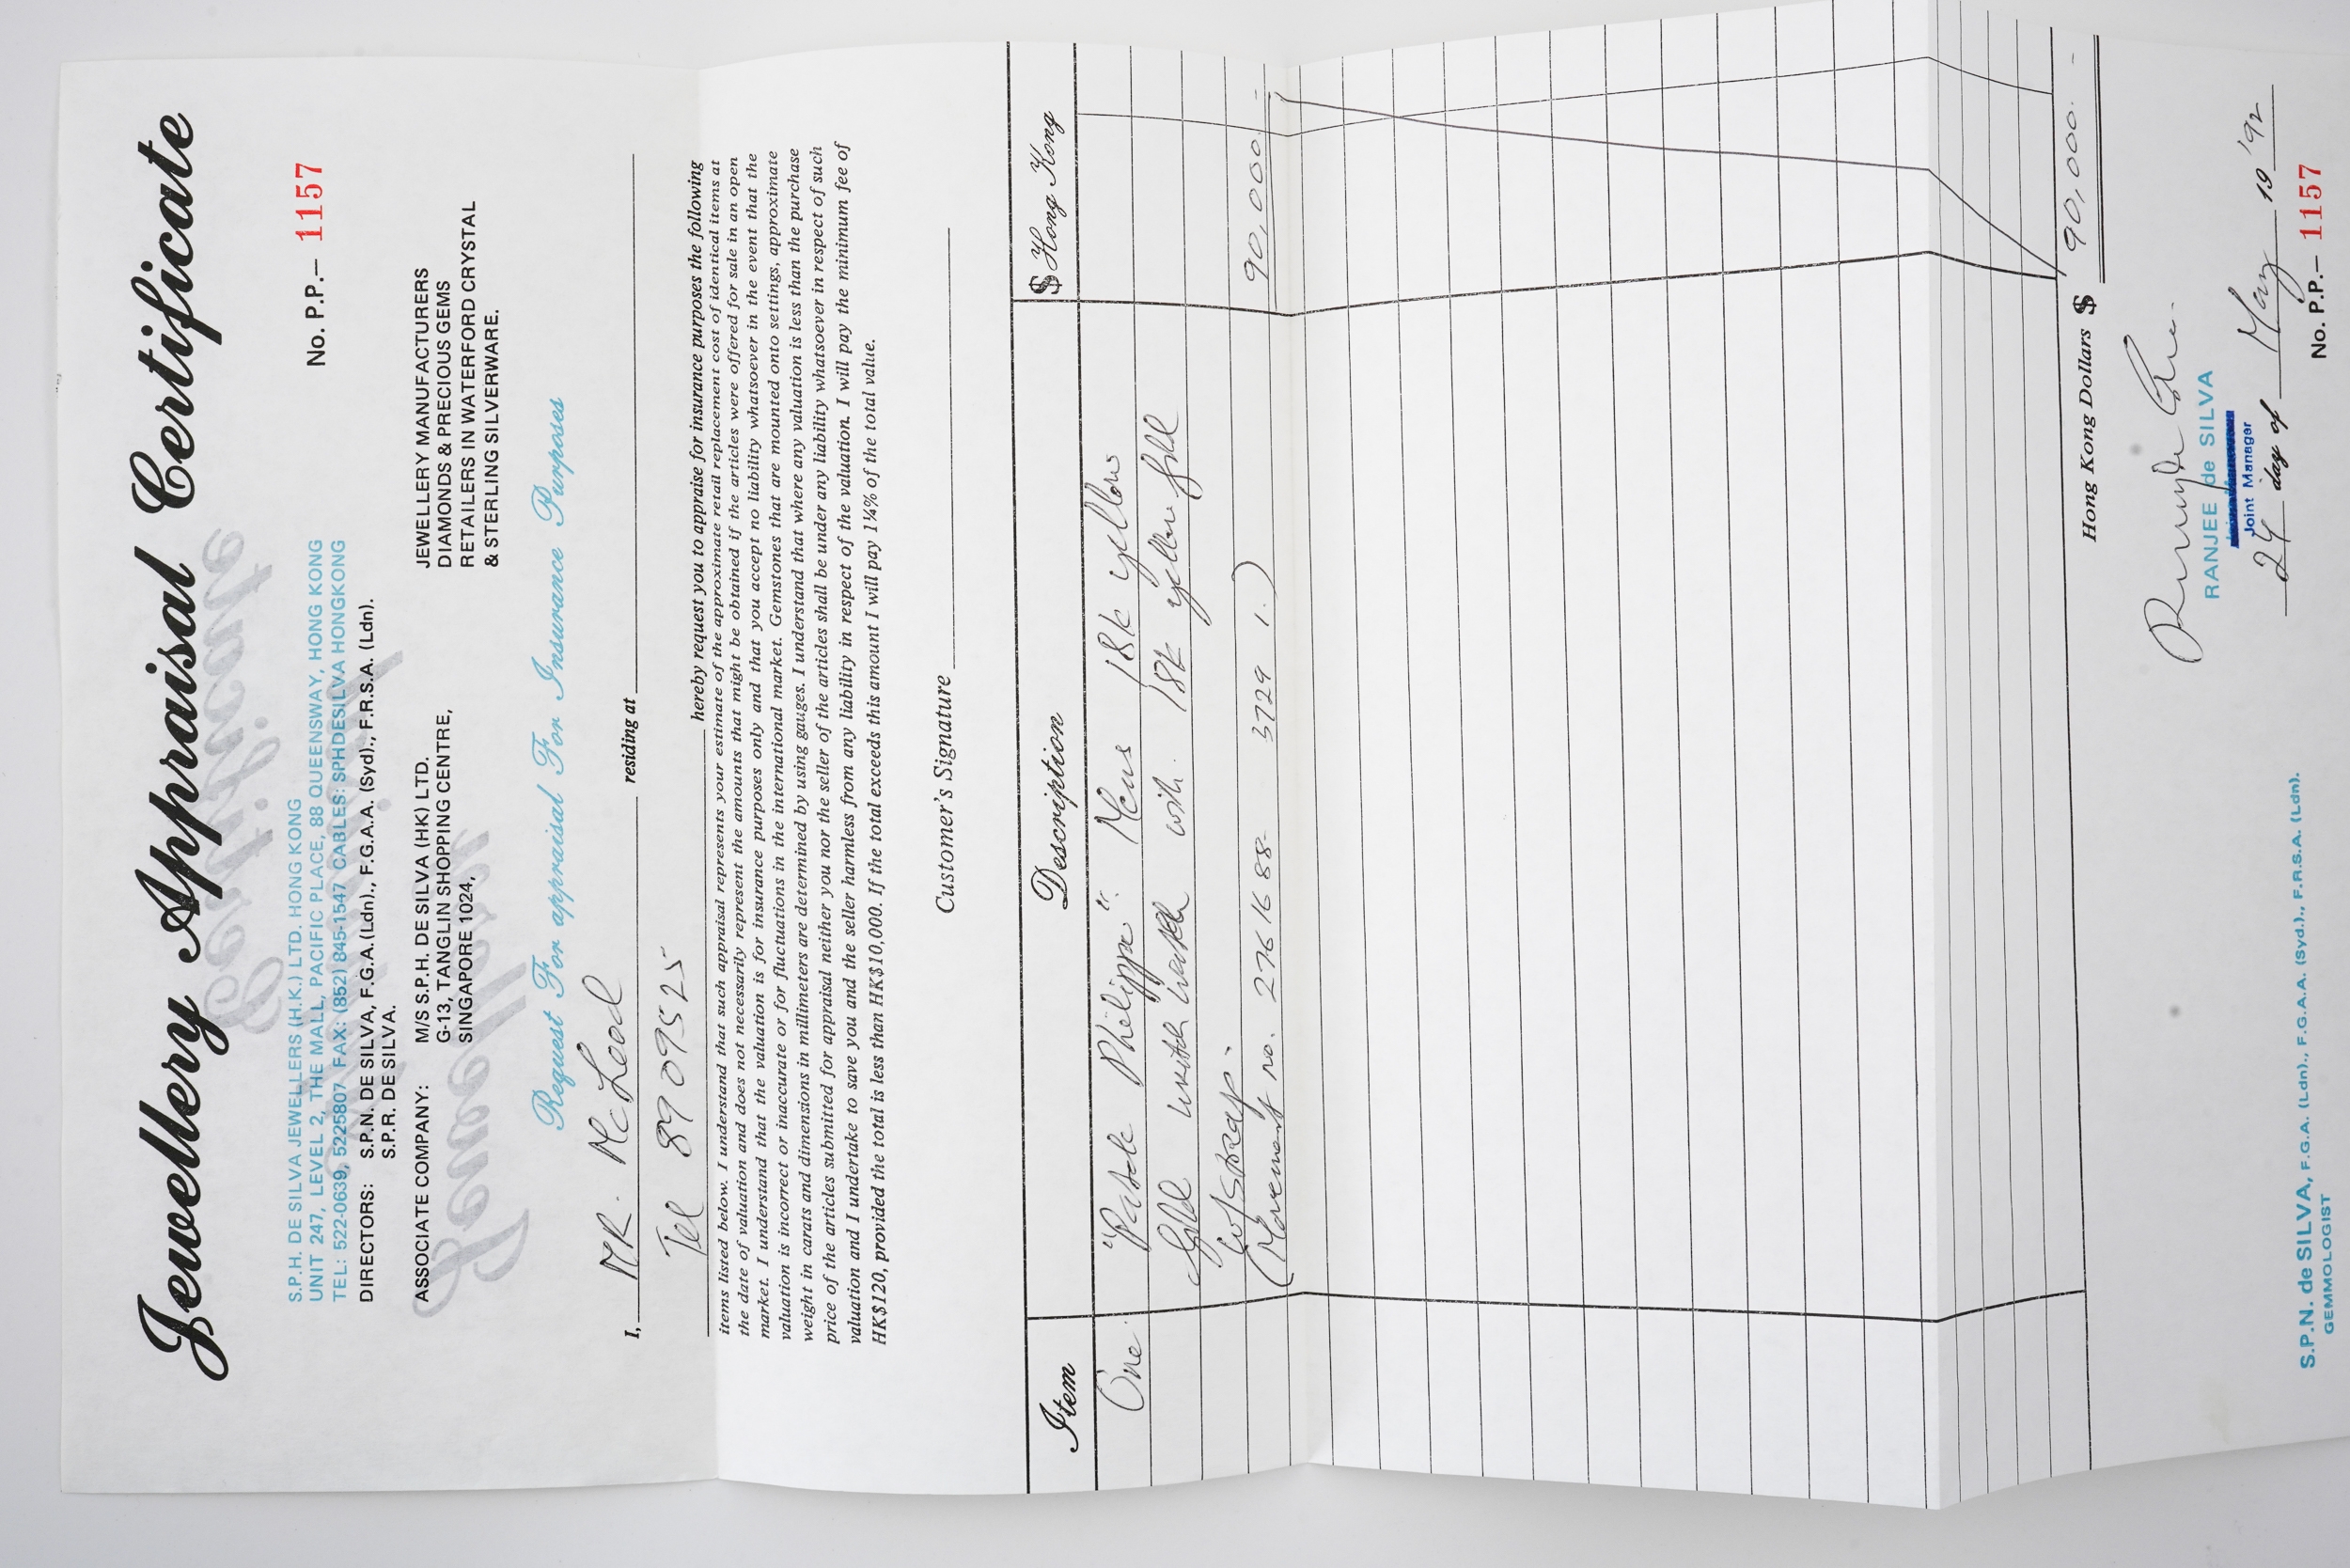 Jewellery Appraisal Certificate
S.P.H. DE SILVA JEWELLERS (H.K.) LTD. HONG KONG
UNIT 247, LEVEL 2, THE MALL, PACIFIC PLACE, 88 QUEENSWAY, HONG KONG
TEL: 522-0639, 5225807 FAX: (852) 845-1547 CABLES: SPHDESILVA HONGKONG
No. P.P.— 1157
DIRECTORS: S.P.N. DE SILVA, F.G.A. (Ldn)., F.G.A.A. (Syd)., F.R.S.A. (Ldn).
S.P.R. DE SILVA.
ASSOCIATE COMPANY: M/S S.P.H. DE SILVA (HK) LTD.
G-13, TANGLIN SHOPPING CENTRE,
SINGAPORE 1024,
JEWELLERY MANUFACTURERS
DIAMONDS & PRECIOUS GEMS
RETAILERS IN WATERFORD CRYSTAL
& STERLING SILVERWARE.
Request For appraisal For Insurance Purposes
I, MR. McLeod residing at
Tel 8909525 hereby request you to appraise for insurance purposes the following
items listed below. I understand that such appraisal represents your estimate of the approximate retail replacement cost of identical items at
the date of valuation and does not necessarily represent the amounts that might be obtained if the articles were offered for sale in an open
market. I understand that the valuation is for insurance purposes only and that you accept no liability whatsoever in the event that the
valuation is incorrect or inaccurate or for fluctuations in the international market. Gemstones that are mounted onto settings, approximate
weight in carats and dimensions in millimeters are determined by using gauges. I understand that where any valuation is less than the purchase
price of the articles submitted for appraisal neither you nor the seller of the articles shall be under any liability whatsoever in respect of such
valuation and I undertake to save you and the seller harmless from any liability in respect of the valuation. I will pay the minimum fee of
HK$120, provided the total is less than HK$10,000. If the total exceeds this amount I will pay 1¼% of the total value.
Customer's Signature
Item Description $ Hong Kong
One "Patek Philippe" Mens 18k yellow
gold watch with 18k yellow gold
w/strap.
(Movement no. 2761688 3729 1.) 90,000.-
Hong Kong Dollars $ 90,000.-
RANJEE de SILVA
Joint Manager
24 day of May 19'92
S.P.N. de SILVA, F.G.A. (Ldn)., F.G.A.A. (Syd)., F.R.S.A. (Ldn).
GEMMOLOGIST
No. P.P.— 1157